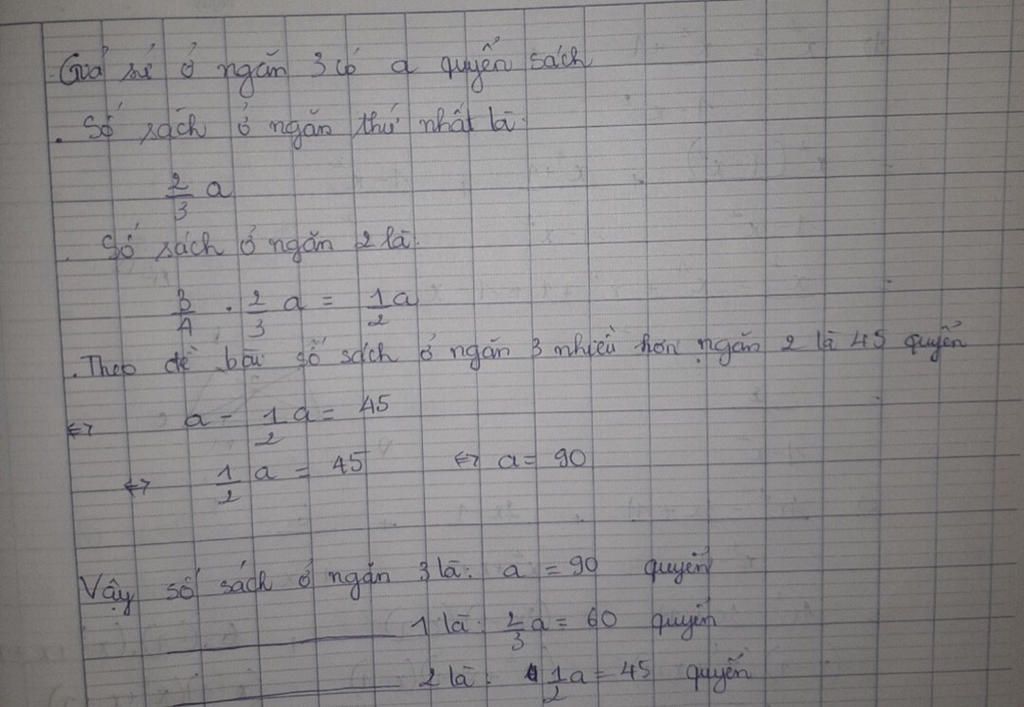 Giả sử ở ngăn 3 có a quyển sách
. Số sách ở ngăn thứ nhất là:
2/3 a
. Số sách ở ngăn 2 là:
3/4 . 2/3 a = 1/2 a
. Theo đề bài số sách ở ngăn 3 nhiều hơn ngăn 2 là 45 quyển
<=> a - 1/2 a = 45
<=> 1/2 a = 45 <=> a = 90
Vậy số sách ở ngăn 3 là: a = 90 quyển
1 là: 2/3 a = 60 quyển
2 là: 1/2 a = 45 quyển